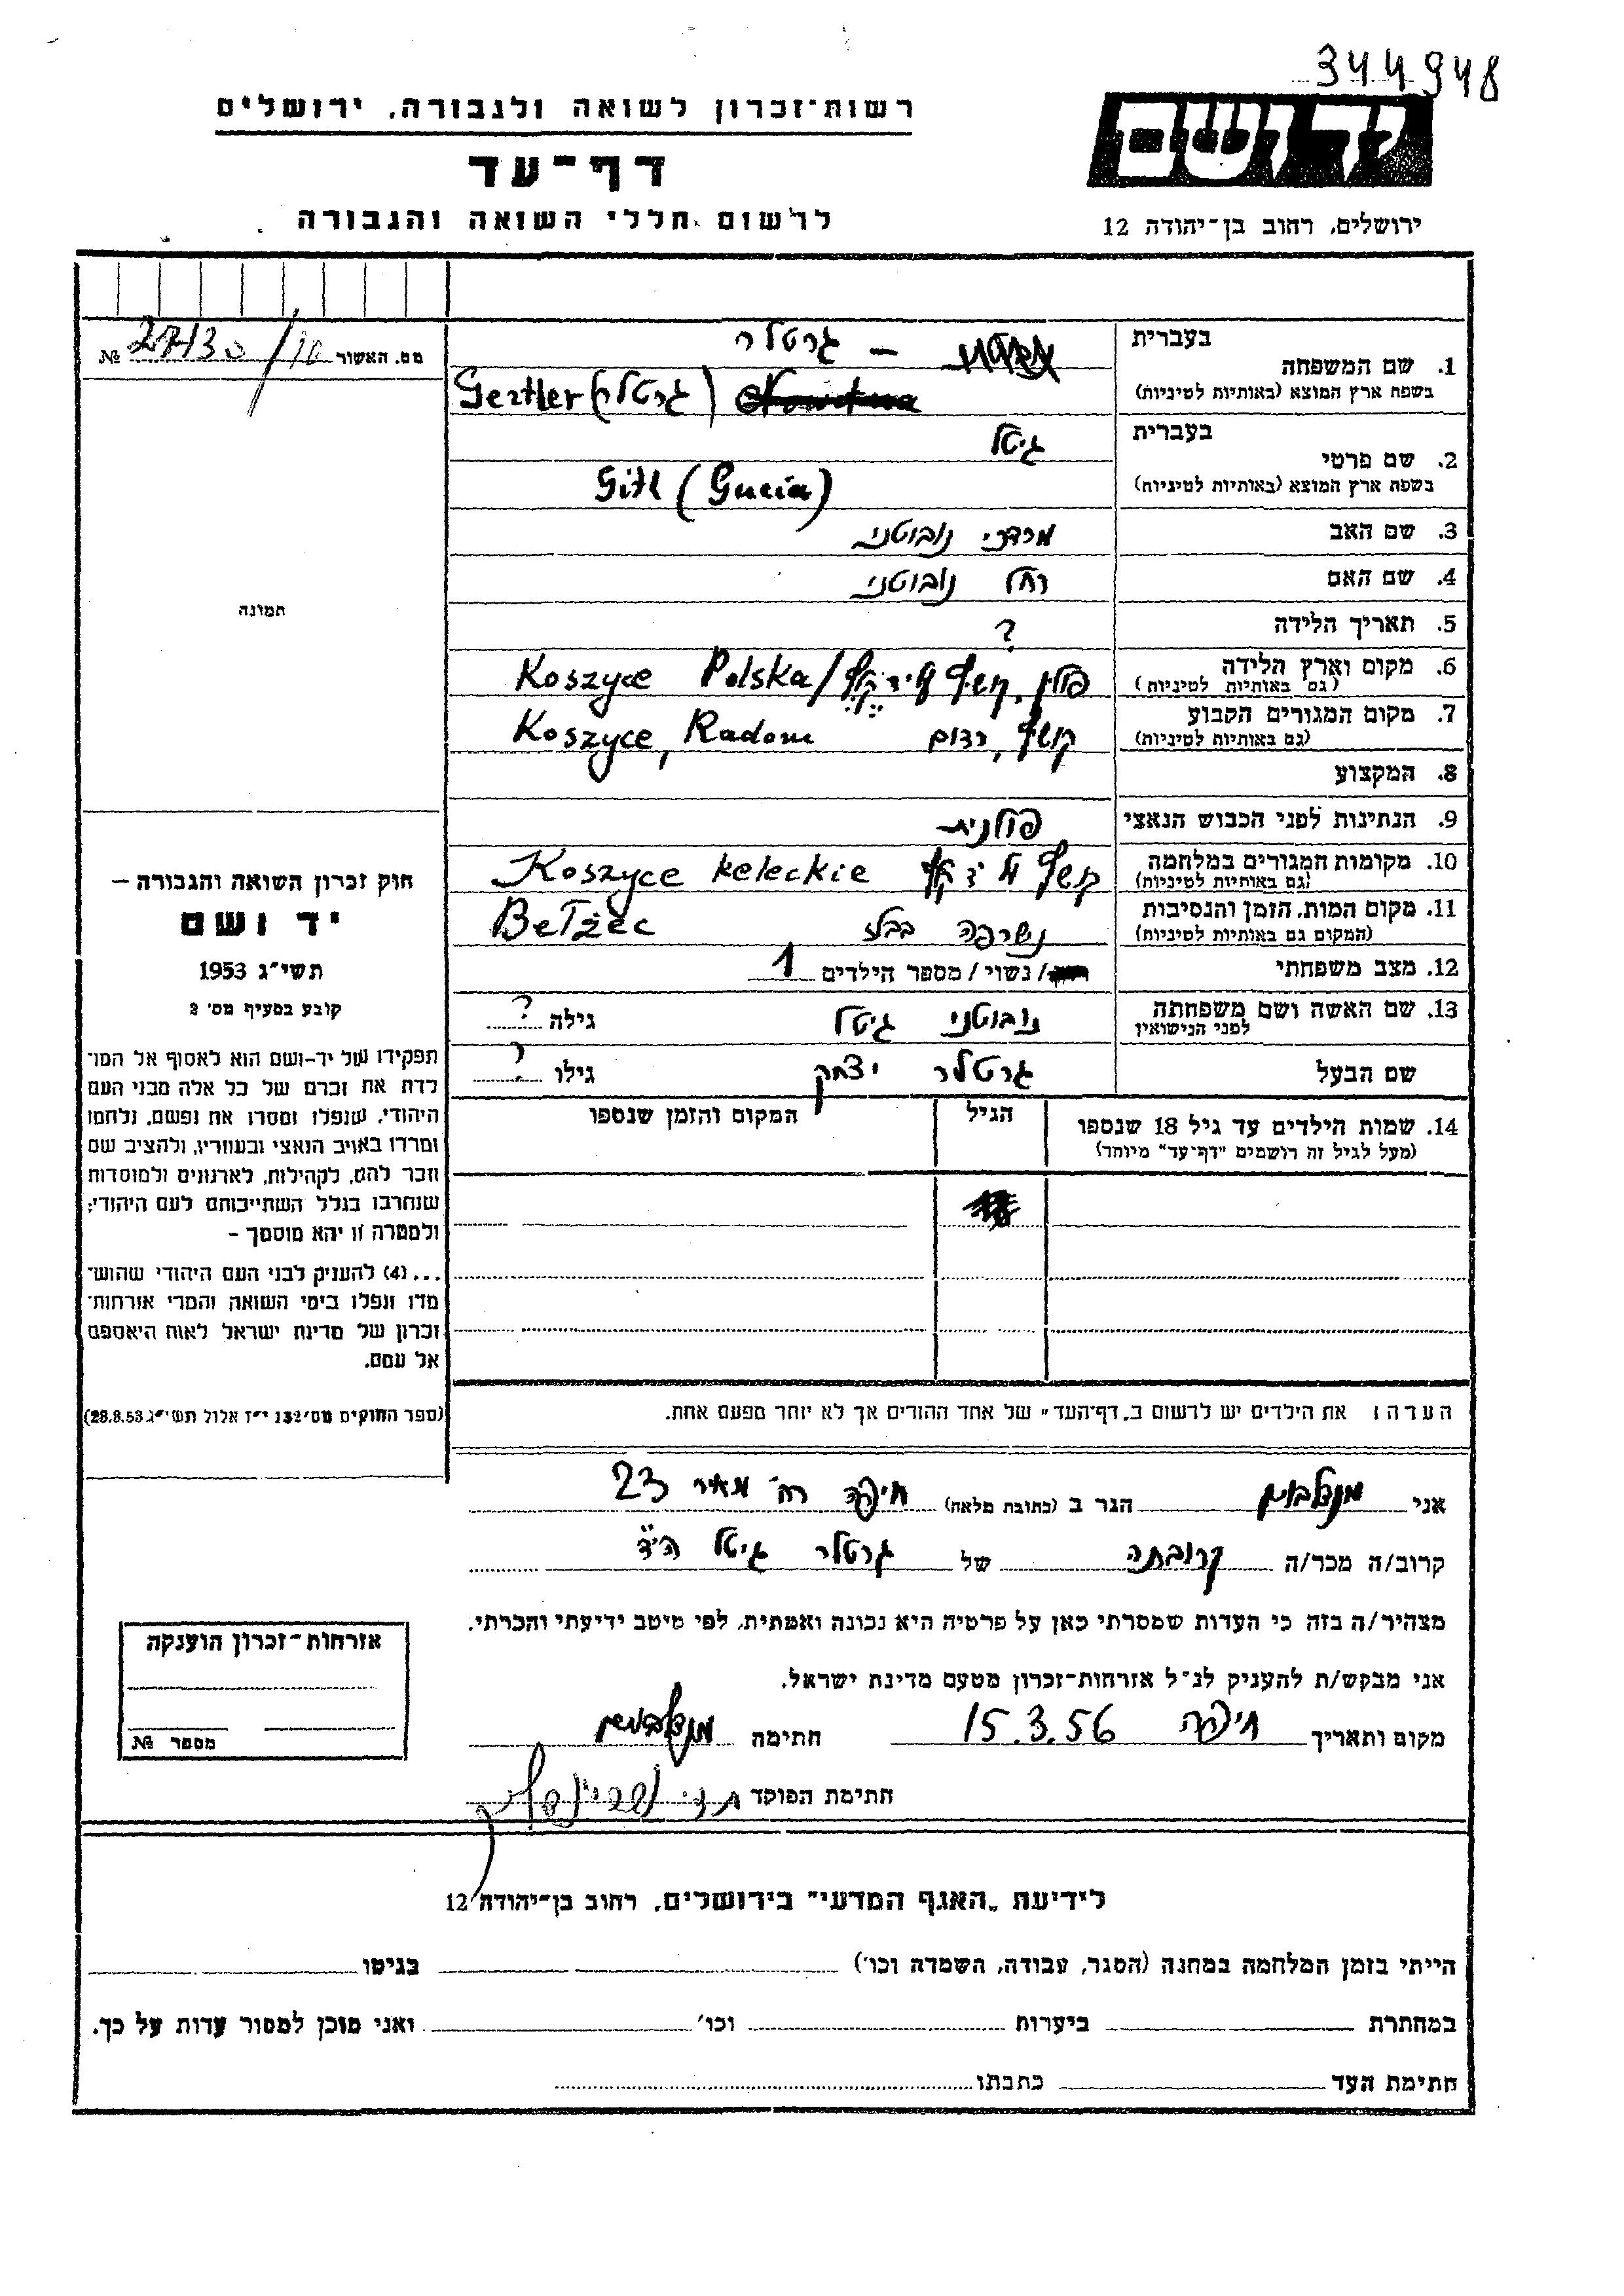 344948
רשות־זכרון לשואה ולגבורה, ירושלים
יד ושם
דף־עד
לרשום חללי השואה והגבורה
ירושלים, רחוב בן־יהודה 12
מס. האשור 27130/10 №
1. שם המשפחה בעברית – גרטלר
בשפת ארץ המוצא (באותיות לטיניות) Gertler (גרטלר)
2. שם פרטי בעברית גיטל
בשפת ארץ המוצא (באותיות לטיניות) Gitl (Gucia)
3. שם האב מרדכי נובוטני
4. שם האם רחל נובוטני
5. תאריך הלידה ?
6. מקום וארץ הלידה (גם באותיות לטיניות) פולין, Koszyce Polska/
7. מקום המגורים הקבוע (גם באותיות לטיניות) קושיץ, רדום Koszyce, Radom
8. המקצוע
9. הנתינות לפני הכבוש הנאצי פולנית
10. מקומות המגורים במלחמה (גם באותיות לטיניות) Koszyce keleckie
11. מקום המות, הזמן והנסיבות (המקום גם באותיות לטיניות) נשרפה בבלז Bełżec
12. מצב משפחתי /נשוי/ מספר הילדים 1
13. שם האשה ושם משפחתה לפני הנישואין נובוטני גיטל גילה ?
שם הבעל גרטלר יצחק גילו ?
14. שמות הילדים עד גיל 18 שנספו
(מעל לגיל זה רושמים "דף־עד" מיוחד)
הגיל
המקום והזמן שנספו
הערה: את הילדים יש לרשום ב„דף־העד" של אחד ההורים אך לא יותר מפעם אחת.
תמונה
חוק זכרון השואה והגבורה –
יד ושם
תשי"ג 1953
קובע בסעיף מס' 2
תפקידו של יד-ושם הוא לאסוף אל המו־
לדת את זכרם של כל אלה מבני העם
היהודי, שנפלו ומסרו את נפשם, נלחמו
ומרדו באויב הנאצי ובעוזריו, ולהציב שם
וזכר להם, לקהילות, לארגונים ולמוסדות
שנחרבו בגלל השתייכותם לעם היהודי;
ולמטרה זו יהא מוסמך –
...(4) להעניק לבני העם היהודי שהוש־
מדו ונפלו בימי השואה והמרי אזרחות־
זכרון של מדינת ישראל לאות היאספם
אל עמם.
(ספר החוקים מס' 132 י"ז אלול תשי"ג 28.8.53)
אני מנדלבוים הגר ב (כתובת מלאה) חיפה רח' מאיר 23
קרוב/ה מכר/ה קרובתה של גרטלר גיטל הי"ד
מצהיר/ה בזה כי העדות שמסרתי כאן על פרטיה היא נכונה ואמתית, לפי מיטב ידיעתי והכרתי.
אני מבקש/ת להעניק לנ"ל אזרחות-זכרון מטעם מדינת ישראל.
מקום ותאריך חיפה 15.3.56 חתימה מנדלבוים
חתימת הפוקד
אזרחות־זכרון הוענקה
מספר №
לידיעת „האגף המדעי" בירושלים, רחוב בן־יהודה 12
הייתי בזמן המלחמה במחנה (הסגר, עבודה, השמדה וכו') בגיטו
במחתרת ביערות וכו' ואני מוכן למסור עדות על כך.
חתימת העד כתבתו